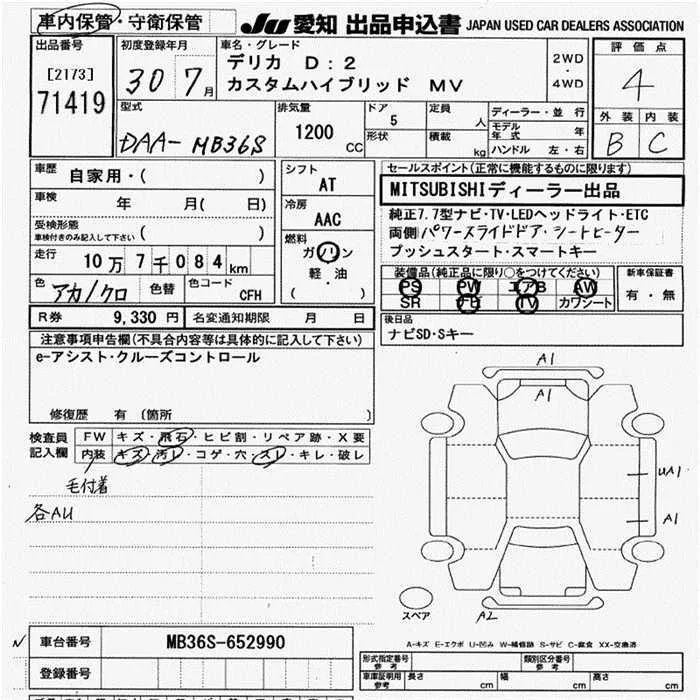 車内保管・守衛保管 JU 愛知 出品申込書 JAPAN USED CAR DEALERS ASSOCIATION
出品番号
[2173]
71419
初度登録年月
30 7月
車名・グレード
デリカ D:2
カスタムハイブリッド MV
2WD
・
4WD
評価点
4
外装 内装
B C
型式
DAA-MB36S
排気量
1200 CC
ドア
5
形状
定員
人
積載
kg
ディーラー・並行
モデル年式 年
ハンドル 左・右
車歴
自家用・( )
車検
年 月( 日)
受検形態
車検付きのみ記入して下さい ( )
走行 10万7千084km
色 アカ/クロ 色替 色コード CFH
シフト
AT
冷房
AAC
燃料
ガソリン
軽・油
( )
セールスポイント(正常に機能するものに限ります)
MITSUBISHIディーラー出品
純正7.7型ナビ・TV・LEDヘッドライト・ETC
両側パワースライドドア・シートヒーター
プッシュスタート・スマートキー
装備品(純正品に限り○をつけてください)
PS PW エアB AW
SR TV カワシート
新車保証書
有・無
R券 9,330円 名変通知期限 月 日
後日品
ナビSD・Sキー
注意事項申告欄(不具合内容等は具体的に記入して下さい)
e-アシスト・クルーズコントロール
修復歴 有 〔箇所 〕
検査員
記入欄
FW キズ・飛石・ヒビ割・リペア跡・X要
内装 キズ・汚レ・コゲ・穴・スレ・キレ・破レ
毛付着
各AU
A1
A1
UA1
A1
スペア
A2
A-キズ E-エクボ U-凹み W-補修跡 S-サビ C-腐食 XX-交換済
車台番号 MB36S-652990
登録番号
形式指定番号
参考
類別区分番号
参考
車庫証明用
参考
長さ cm 幅 cm 高さ cm